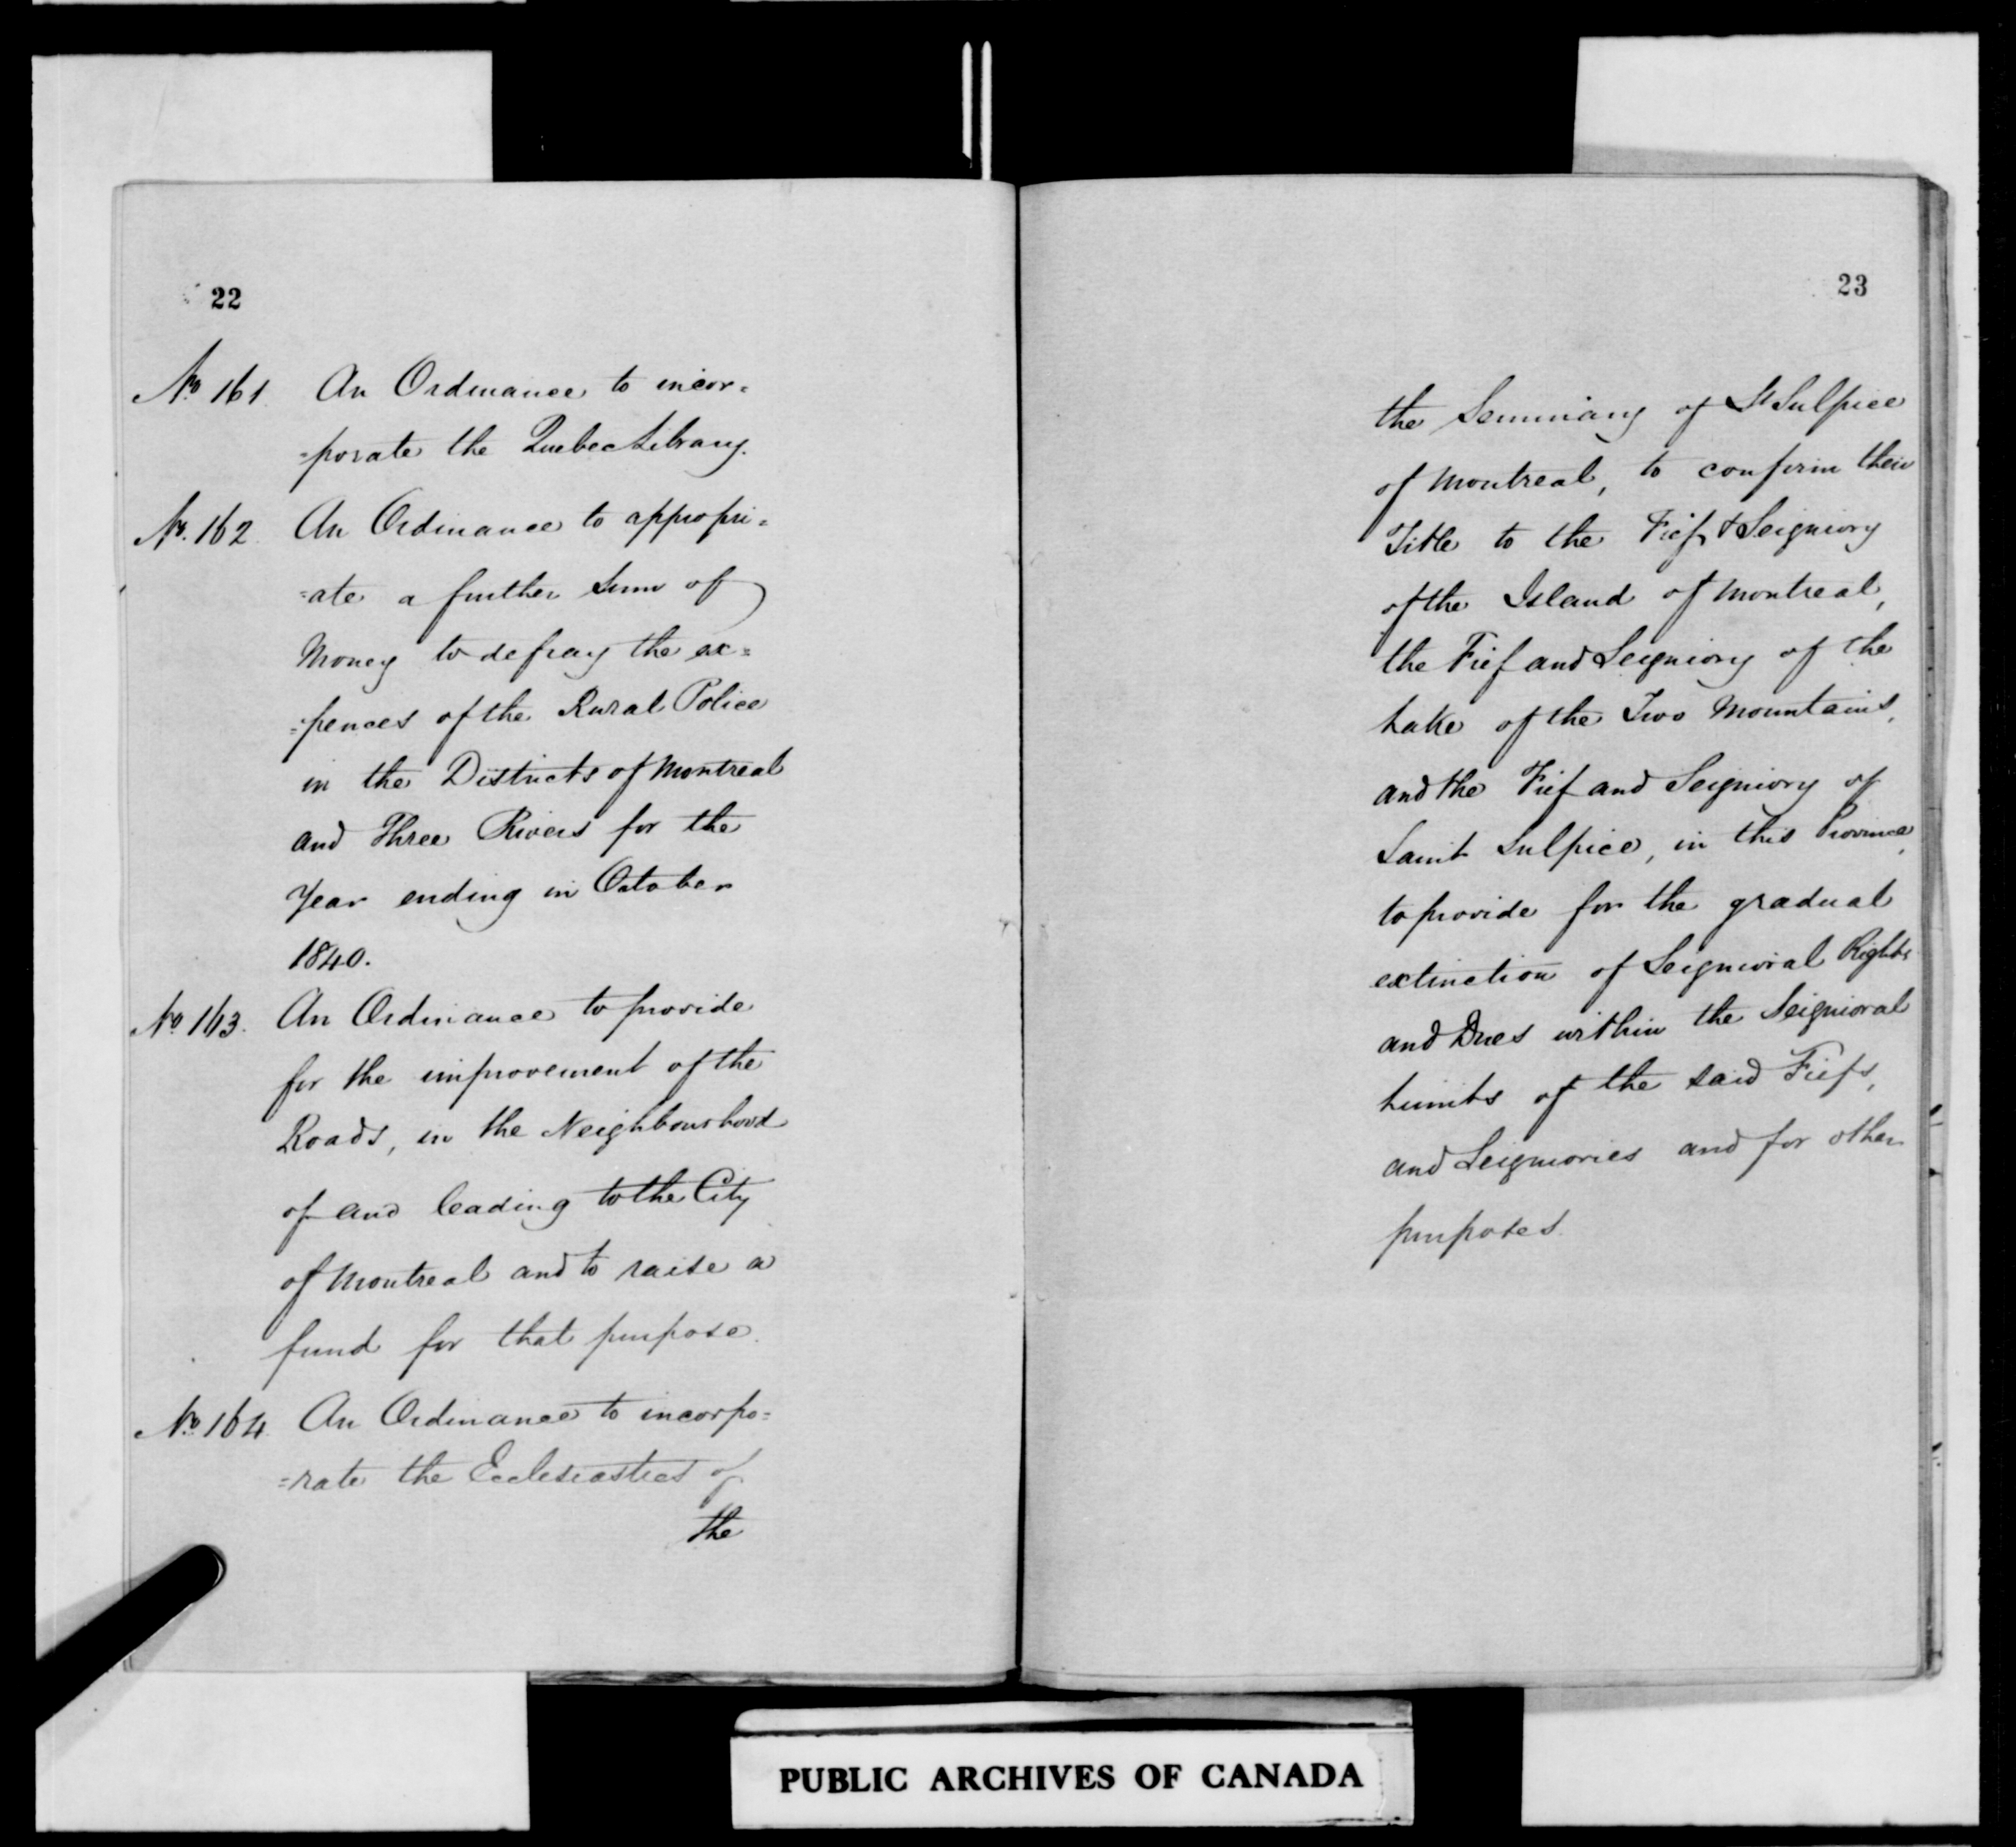 22
No 161. An Ordinance to incor=
=porate the Quebec Library.
No. 162. An Ordinance to appropri=
=ate a further Sum of
Money to defray the ex=
=pences of the Rural Police
in the Districts of Montreal
and Three Rivers for the
Year ending in October
1840.
No 163. An Ordinance to provide
for the improvement of the
Roads, in the Neighbourhood
of and leading to the City
of Montreal and to raise a
fund for that purpose.
No 164. An Ordinance to incorpo=
=rate the Ecclesiastics of
the
23
the Seminary of St Sulpice
of Montreal, to confirm their
Title to the Fief & Seigniory
of the Island of Montreal,
the Fief and Seigniory of the
Lake of the Two Mountains,
and the Fief and Seigniory of
Saint Sulpice, in this Province,
to provide for the gradual
extinction of Seigniorial Rights
and Dues within the Seigniorial
Limits of the said Fiefs,
and Seigniories and for other
purposes.
PUBLIC ARCHIVES OF CANADA